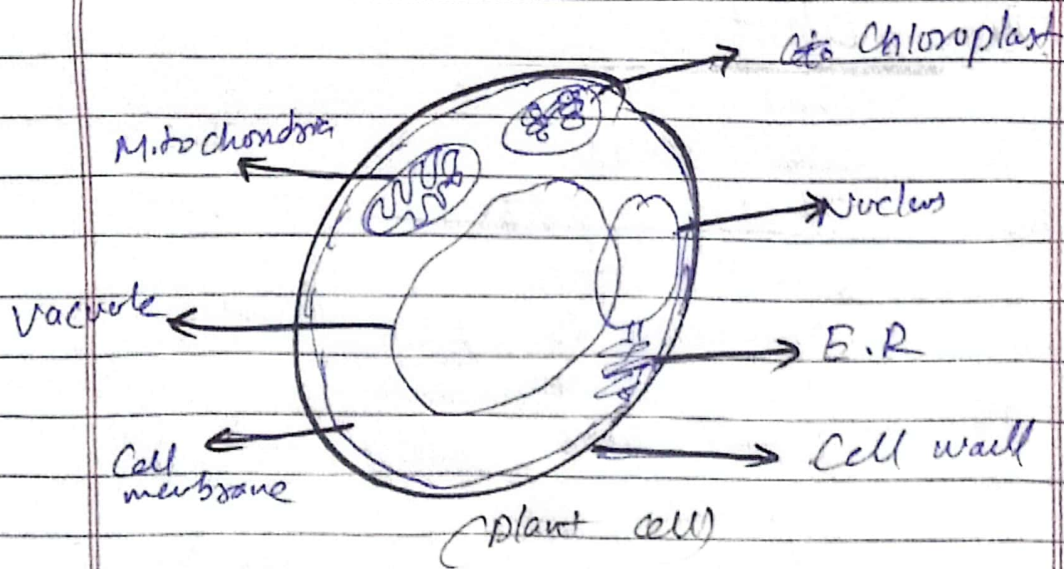 Chloroplast
Mitochondria
Nucleus
Vacuole
E.R
Cell
membrane
Cell wall
(plant cell)